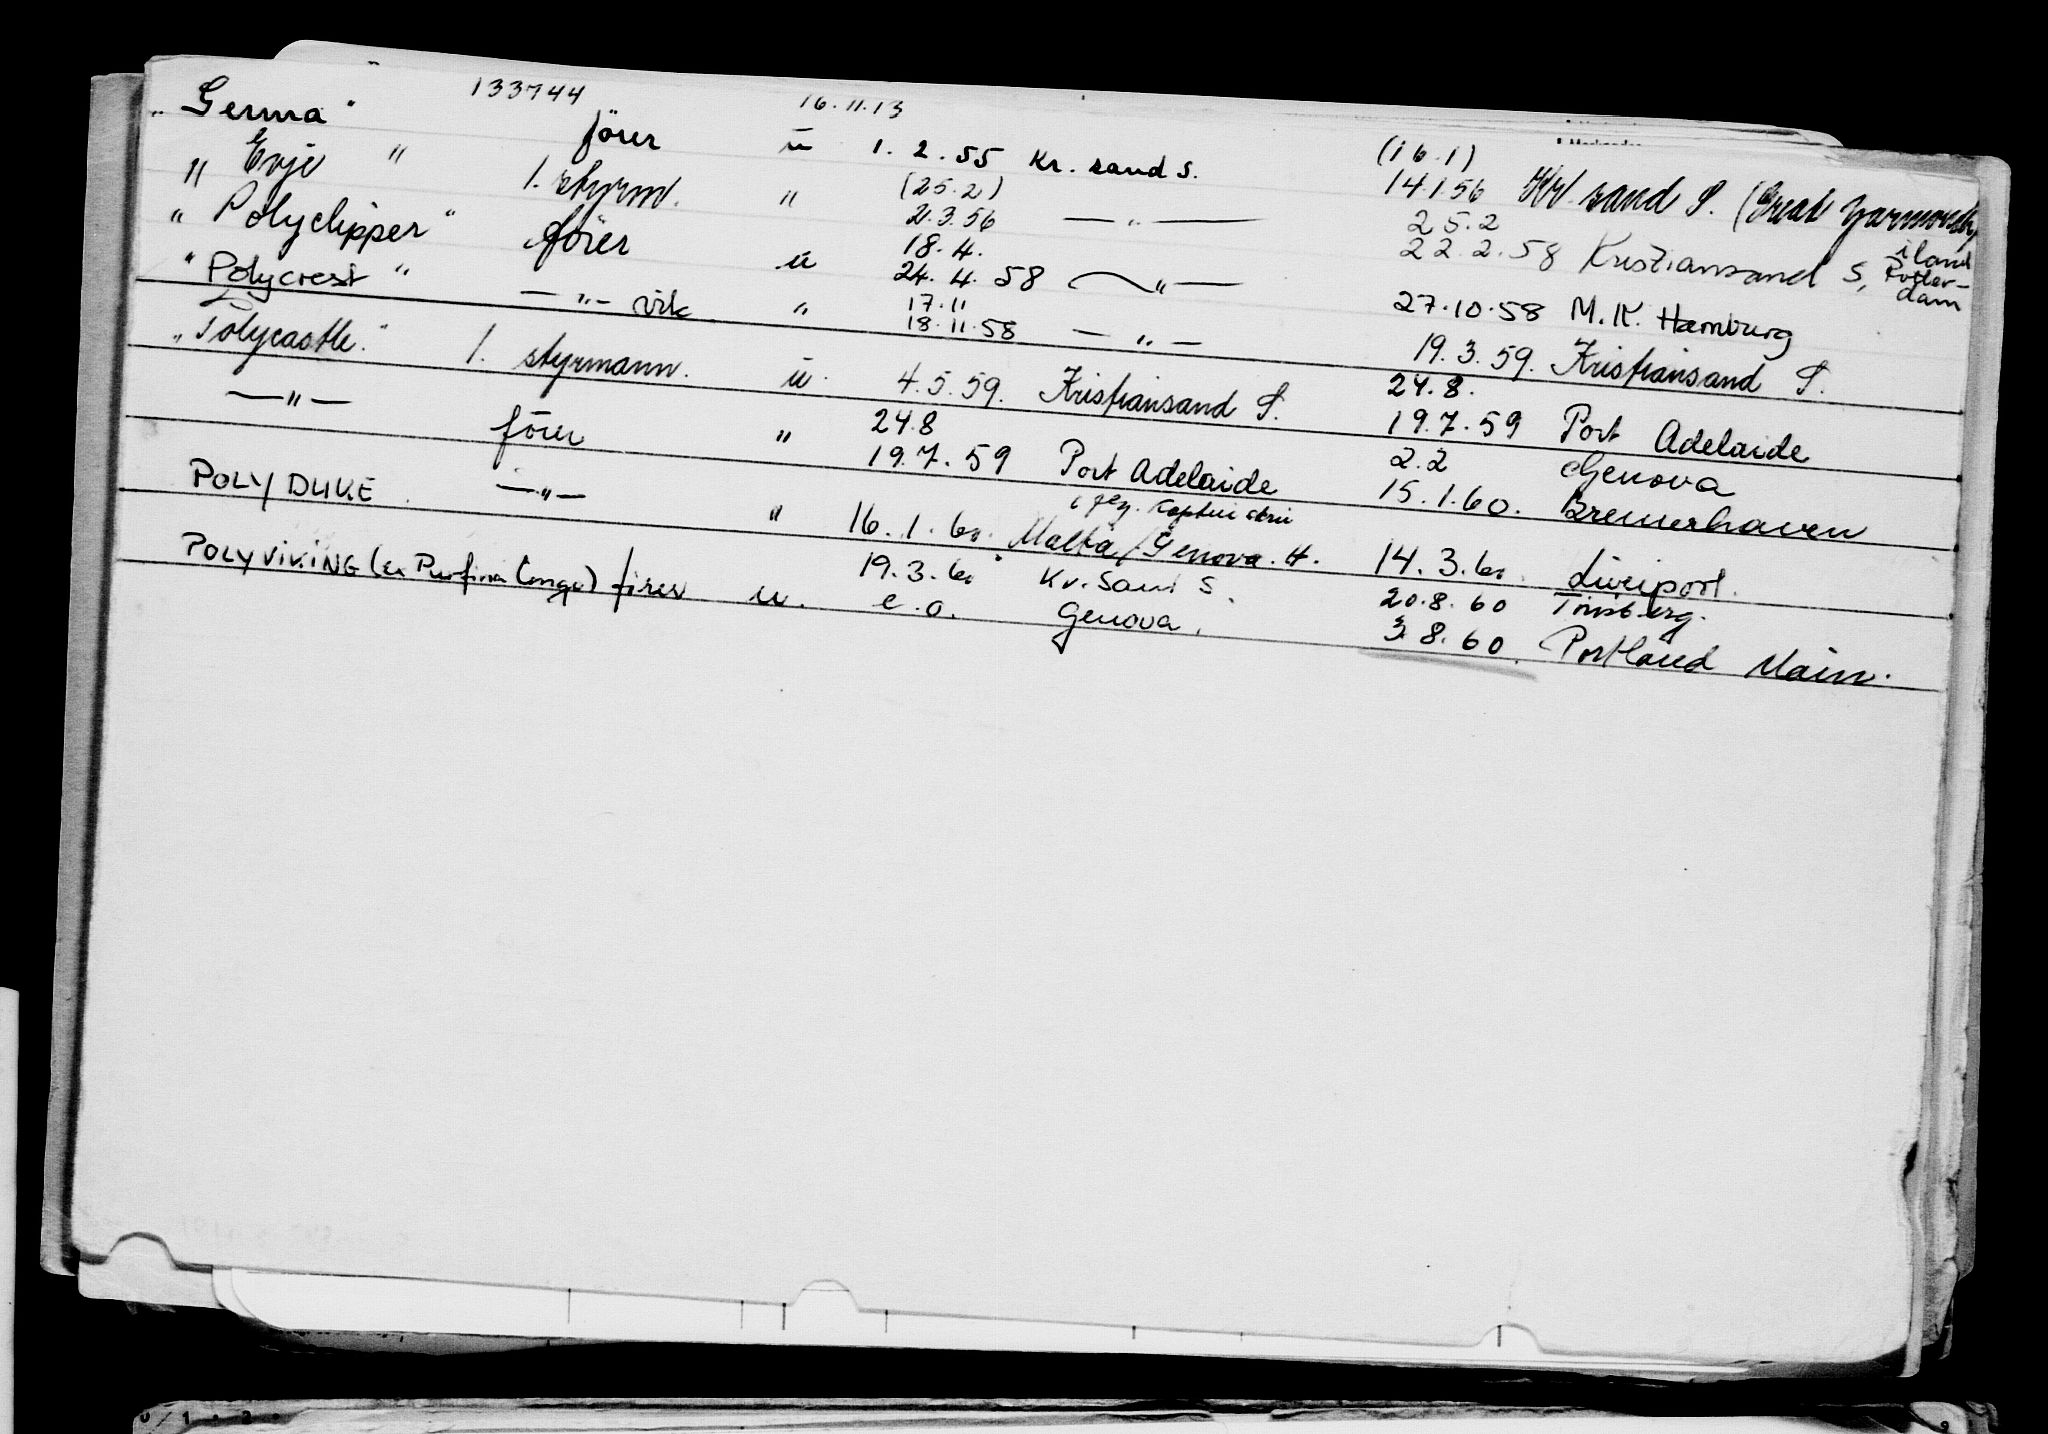 133744 16.11.13
„Germa" förer u 1.2.55 Kr.sand S. (16.1) 14.1.56 Kr sand S. (Great Yarmouth
" Evje " 1. styrm. " (25.2) 2.3.56 — " — 25.2 22.2.58 Kristiansand S, iland Rotter-dam
" Polyclipper " förer u 18.4. 24.4.58 — " — 27.10.58 M.K. Hamburg
" Polycrest " — " — vik " 17.11 18.11.58 — " — 19.3.59. Kristiansand S.
„Polycastle." 1. styrmann. u. 4.5.59. Kristiansand S. 24.8. 19.7.59 Port Adelaide
— " — förer " 24.8 19.7.59 Port Adelaide 2.2 Genova 15.1.60. Bremerhaven
POLY DUKE. — " — " 16.1.60. Malta/Genova. H. 14.3.60. Liverpool.
POLYVIKING (ex Purfina Congo) förer u. 19.3.60 Kr.sand S. 20.8.60 Tönsberg.
e.o. Genova. 3.8.60. Portland Main.